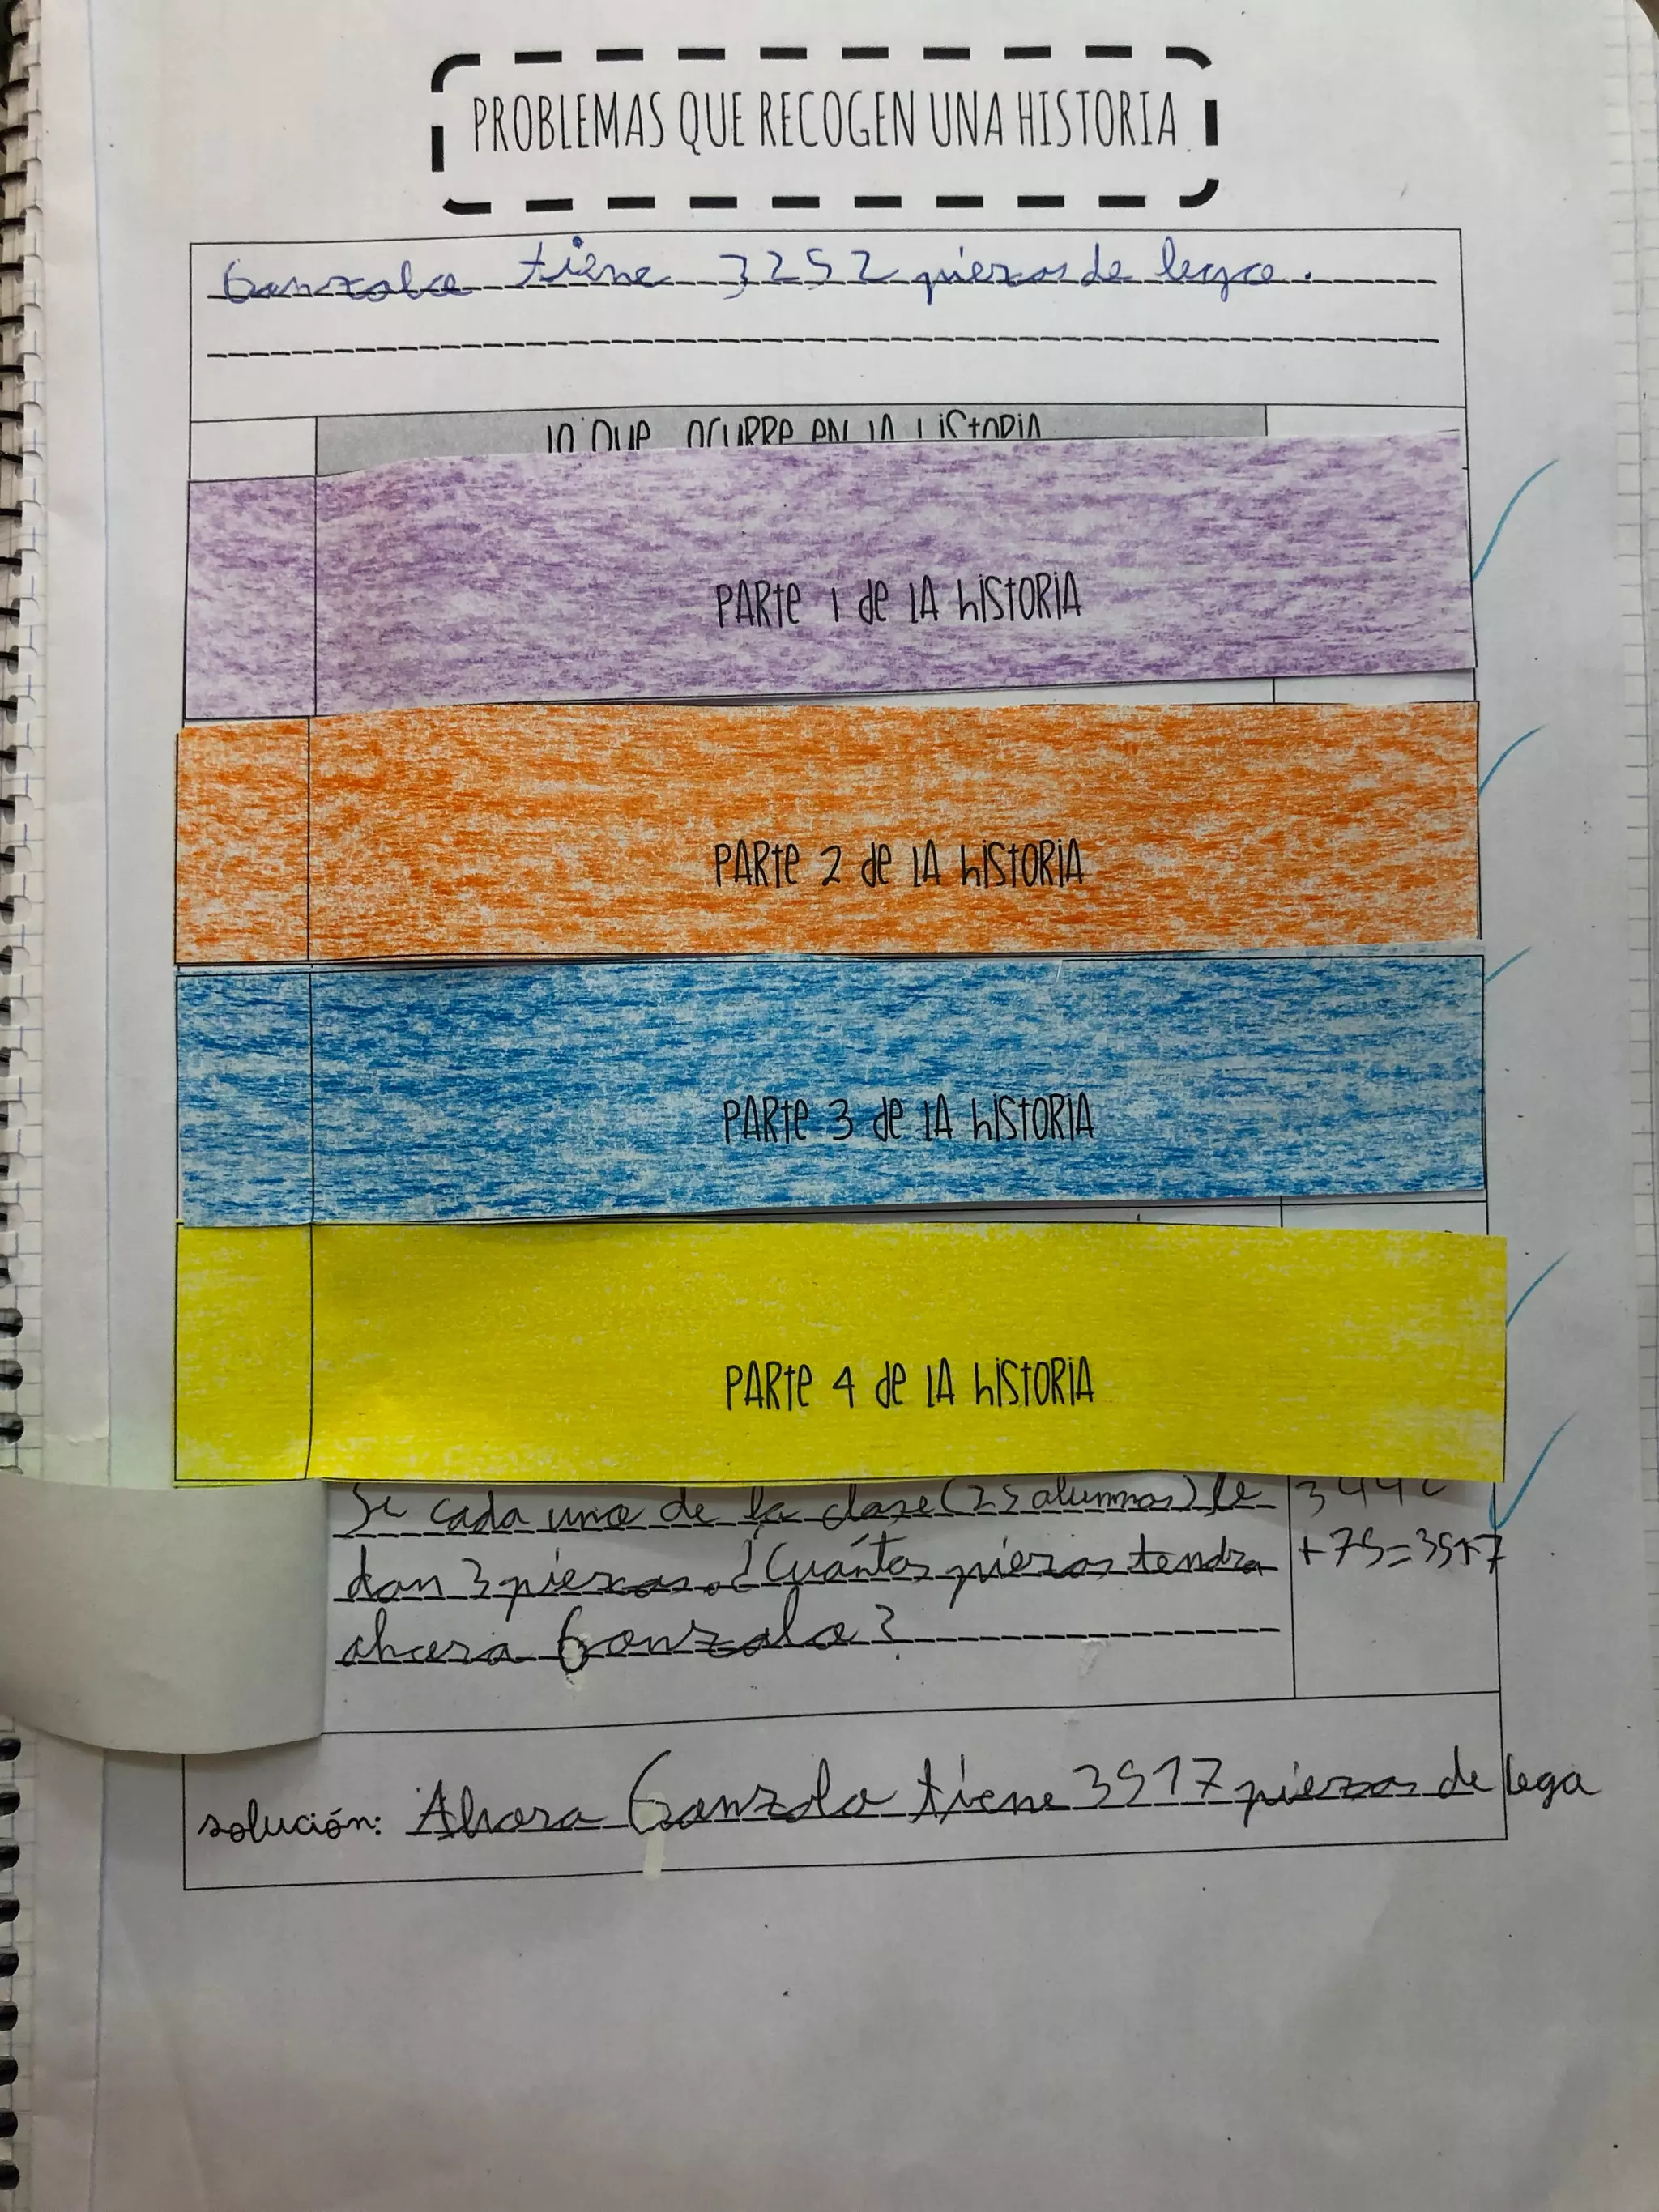 PROBLEMAS QUE RECOGEN UNA HISTORIA
Gonzalo tiene 3252 piezas de lego.
lo que ocurre en la historia
PARTE 1 de LA hiSTORIA
PARTE 2 de LA hiSTORIA
PARTE 3 de LA hiSTORIA
PARTE 4 de LA hiSTORIA
Si cada uno de la clase (25 alumnos) le
dan 3 piezas. ¿Cuántas piezas tendra
ahora Gonzalo?
+75=3517
solución: Ahora Gonzalo tiene 3517 piezas de lego